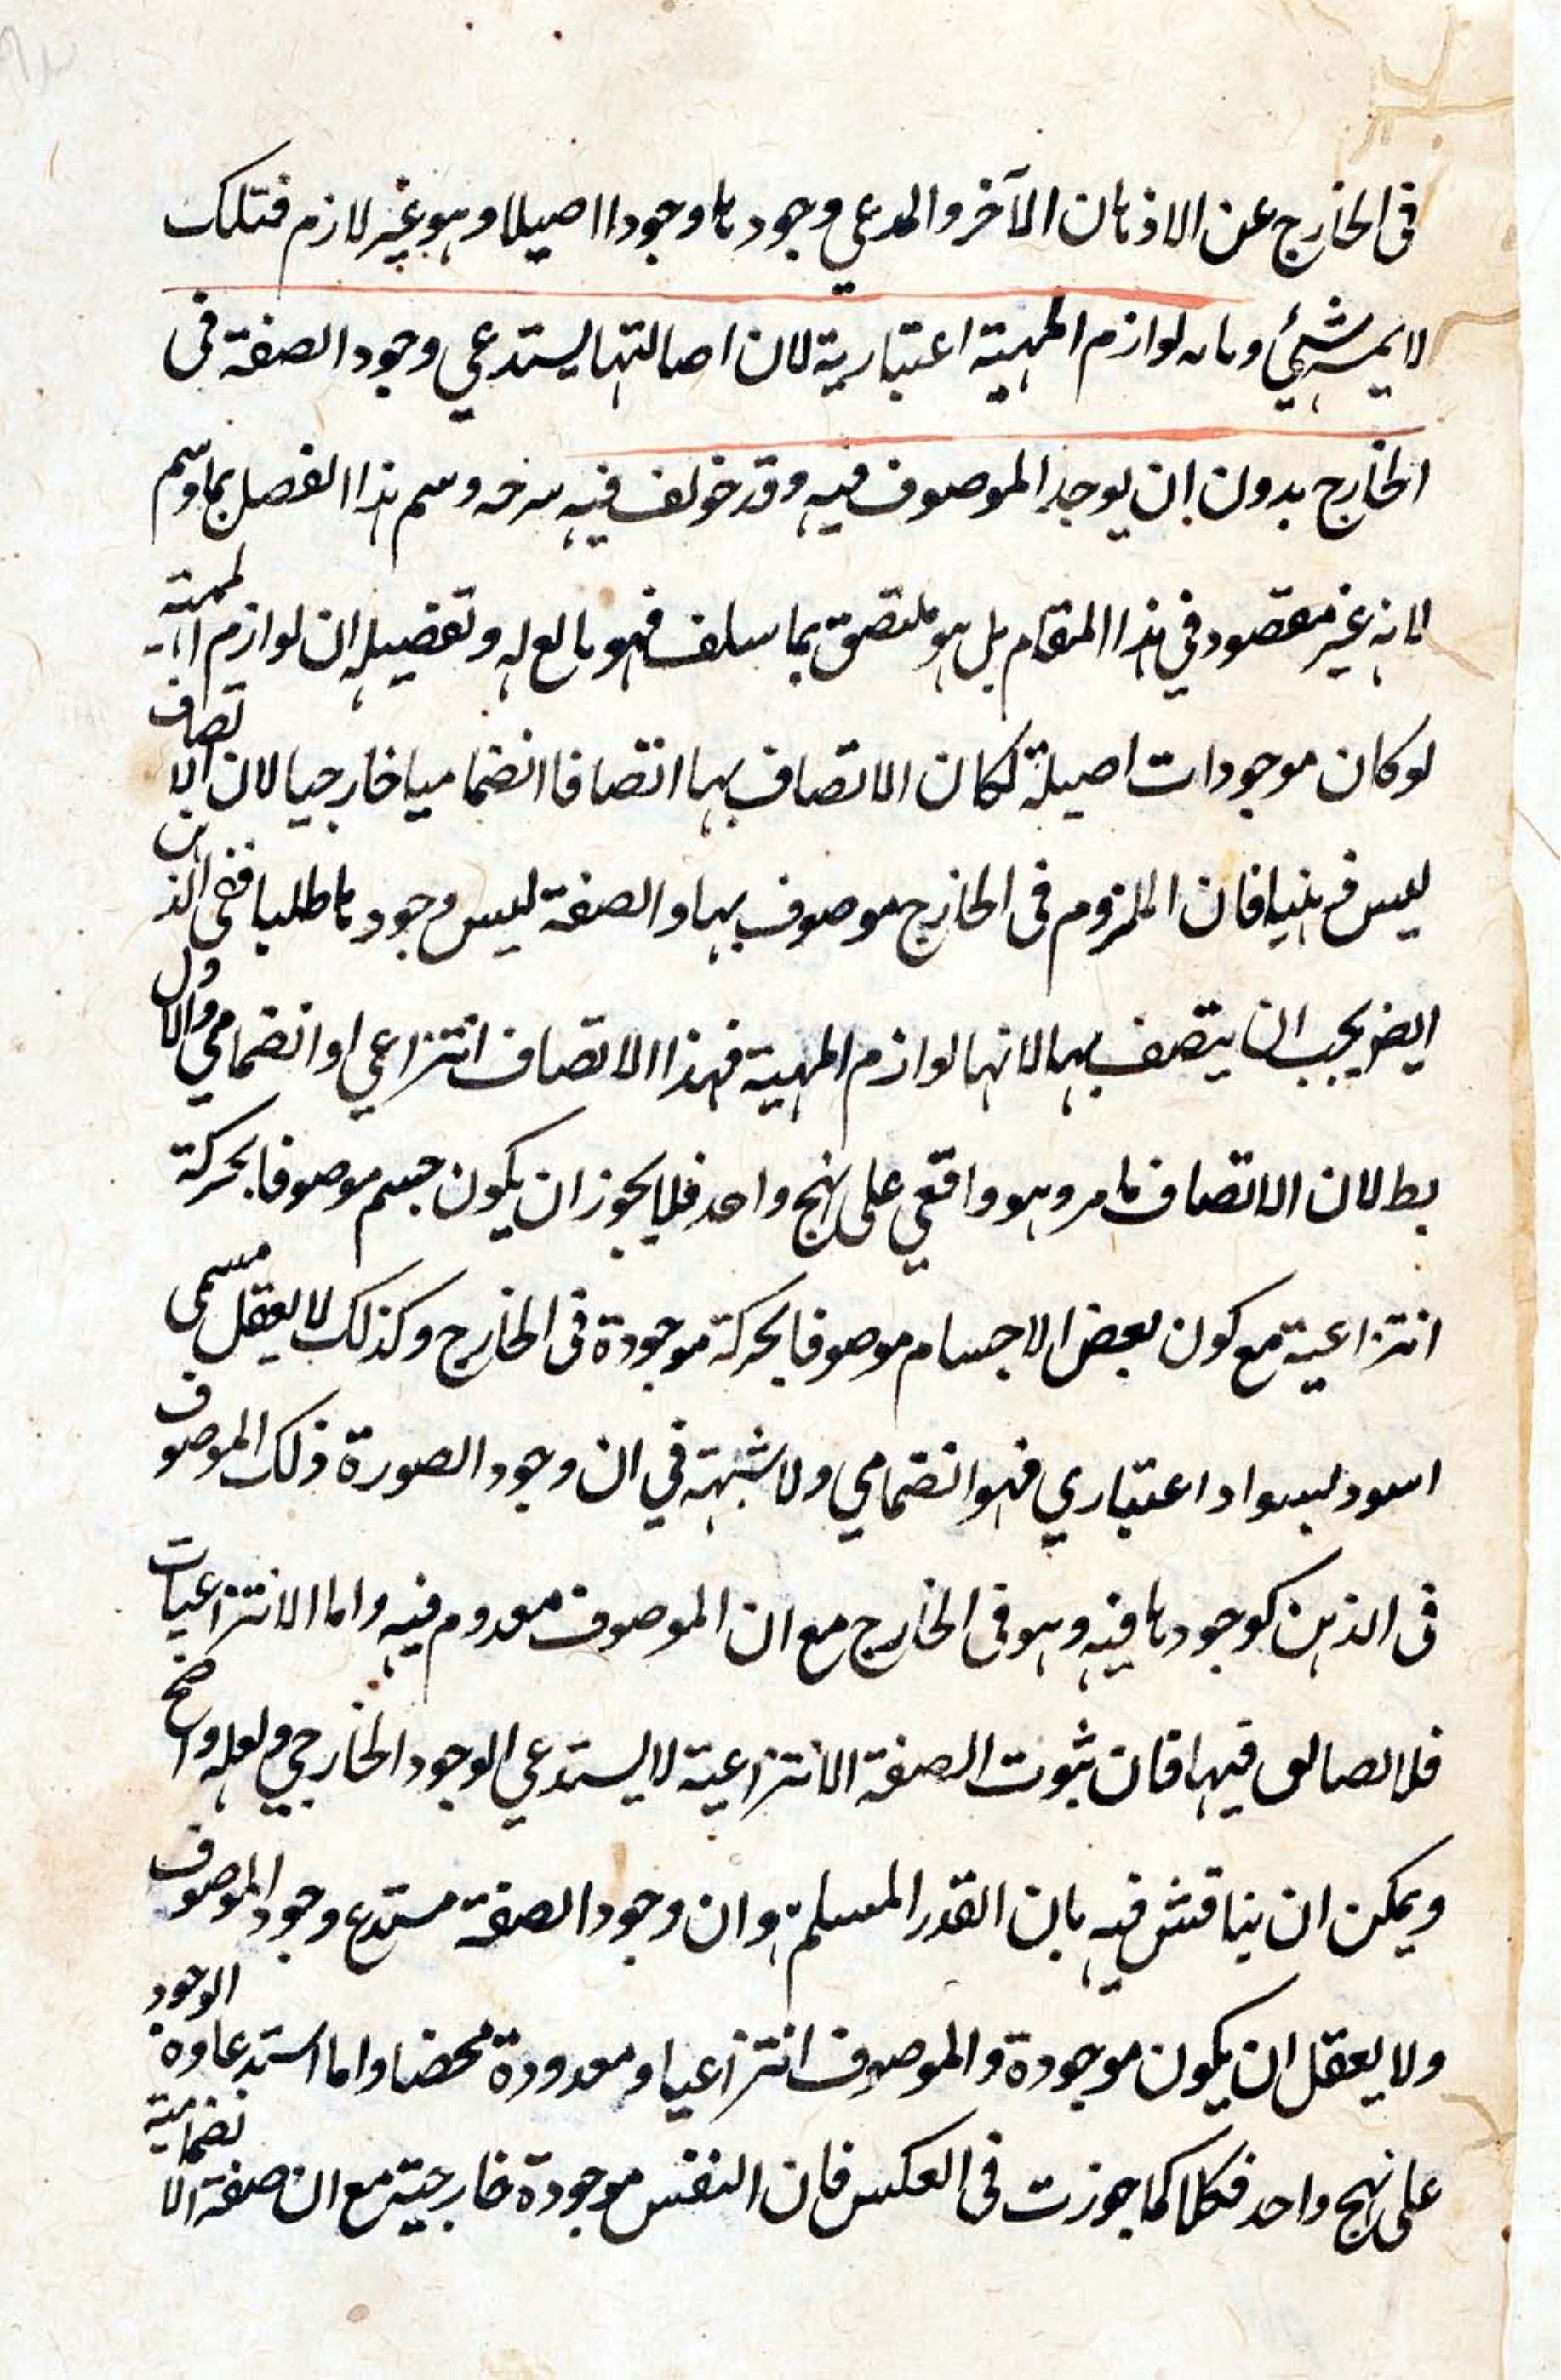 فى الخارج عن الاذهان الآخر والمدعي وجودها وجودا اصيلا وهو غير لازم فتلك
لا يمسه شئ وبان لوازم المهية اعتبارية لان اصالتها يستدعي وجود الصفة فى
الخارج بدون ان يوجد الموصوف فيه وقد خولف فيه وسم هذا الفصل بما وسم
لانه غير مقصود في هذا المقام بل هو ملتصق بما سلف فهو تابع له وتفصيله ان لوازم المهية
لو كان موجودات اصيلة لكان الاتصاف بها اتصافا انضماميا خارجيا لان الاتصاف
ليس ذهنيا فان الملزوم فى الخارج موصوف بها والصفة ليس وجودها ظليا ففى الذهن
ايضا يجب ان يتصف بها لانها لوازم المهية فهذا الاتصاف انتزاعي او انضمامي والاول
بط لان الاتصاف بامر وهو واقعي على نهج واحد فلا يجوز ان يكون جسم موصوفا بحركة
انتزاعية مع كون بعض الاجسام موصوفا بحركة موجودة فى الخارج وكذلك لا يعقل مسمى
اسود بسواد اعتباري فهو انضمامي ولا شبهة في ان وجود الصورة ذلك الموصوف
فى الذهن كوجودها فيه وهو فى الخارج مع ان الموصوف معدوم فيه واما الانتزاعيات
فلا فيها فان ثبوت الصفة الانتزاعية لا يستدعي الوجود الخارجي ولعله واضح
ويمكن ان يناقش فيه بان القدر المسلم هو ان وجود الصفة مستدع وجود الموصوف
ولا يعقل ان يكون موجودة والموصوف انتزاعيا ومعدودة محضا واما استدعاوه الوجود
على نهج واحد فكلا كما جوزت فى العكس فان النفس موجودة خارجية مع ان صفة الانضمامية